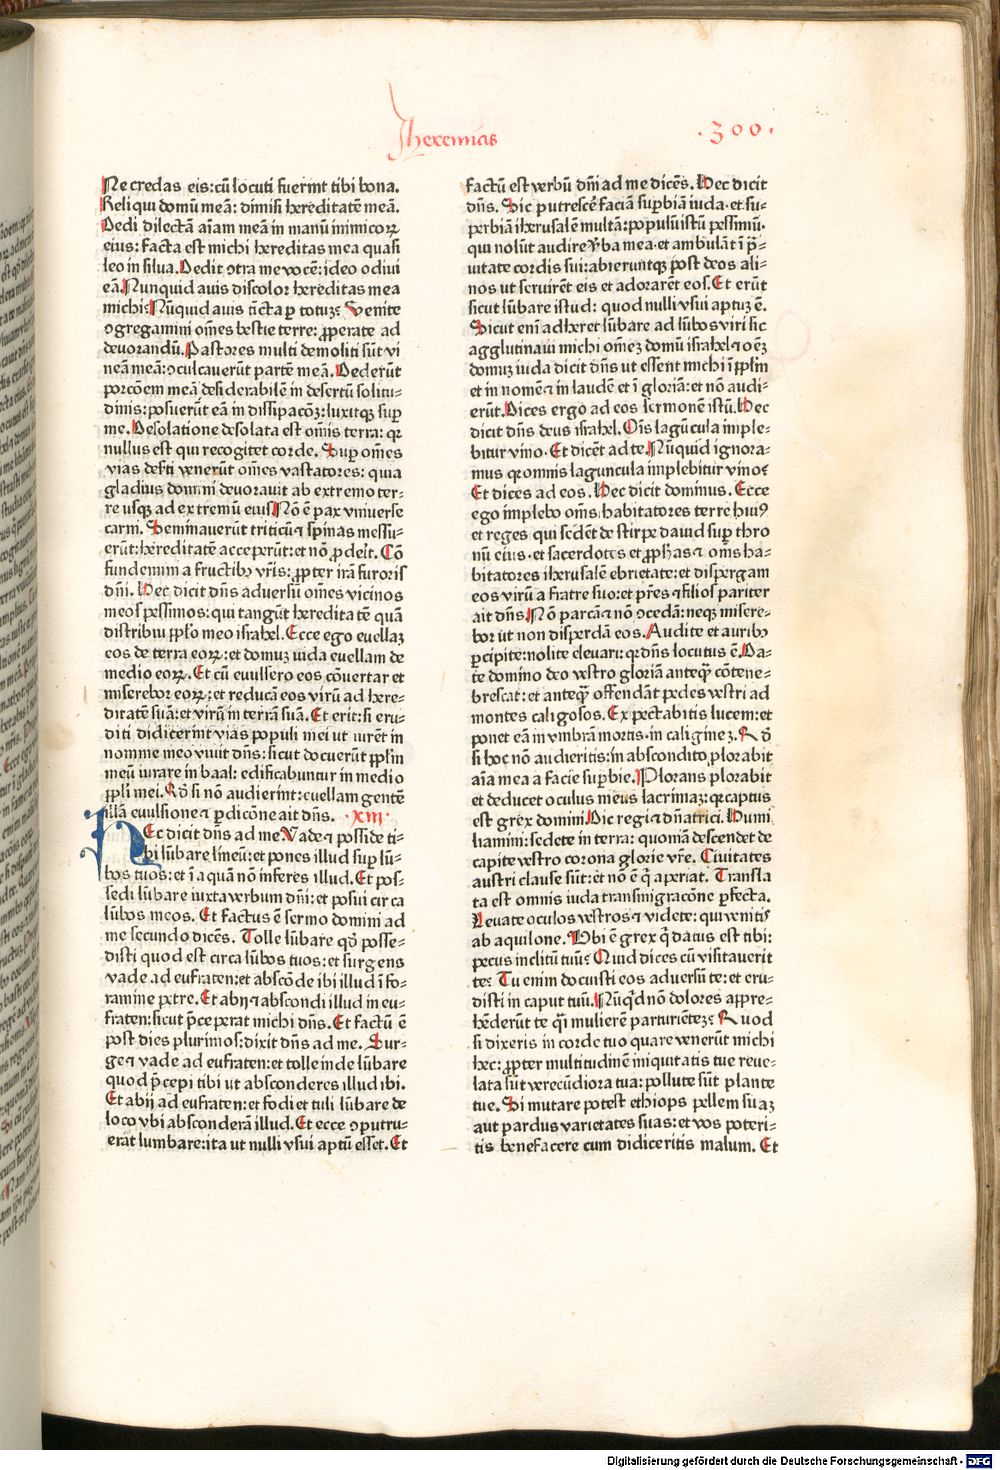 Jheremias
·300·
Ne credas eis:cū locuti fuerint tibi bona.
Reliqui domū meā: dimisi hereditatē meā.
Dedi dilectā aīam meā in manū inimicoꝝ
eius: facta est michi hereditas mea quasi
leo in silua. Dedit ꝯtra me vocē: ideo odiui
eā. Nunquid auis discolor hereditas mea
michi? Nūquid auis tīcta ꝑ totuꝫ? Venite
ꝯgregamini om̄es bestie terre: ꝓperate ad
deuorandū. Pastores multi demoliti sūt vi
neā meā: ꝯculcauerūt partē meā. Dederūt
porcōem meā desiderabilē in desertū solitu-
dinis: posuerūt eā in dissipacōꝫ: luxitqꝫ suꝑ
me. Desolatione desolata est om̄is terra: qꝛ
nullus est qui recogitet corde. Suꝑ om̄es
vias def̄ti venerūt om̄es vastatores: quia
gladius domini deuorauit ab extremo ter-
re usqꝫ ad extremū eius. Nō ē pax vniuerse
carni. Seminauerūt triticū ⁊ spinas messu-
erūt: hereditatē acceperūt: et nō ꝓderit. Cō
fundemini a fructibꝰ vr̄is: ꝓpter irā furoris
dn̄i. Hec dicit dn̄s aduersū om̄es vicinos
meos pessimos: qui tangūt hereditatē quā
distribui pp̄lo meo israhel. Ecce ego euellaꝫ
eos de terra eoꝝ: et domuꝫ iuda euellam de
medio eoꝝ. Et cū euulsero eos cōuertar et
miserebor eoꝝ: et reducā eos virū ad here-
ditatē suā: et virū in terrā suā. Et erit: si eru-
diti didicerint vias populi mei ut iurēt in
nomine meo viuit dn̄s: sicut docuerūt pp̄lm
meū iurare in baal: edificabuntur in medio
pp̄li mei. Qd̄ si nō audierint: euellam gentē
illā euulsione ⁊ ꝑdicōne ait dn̄s. ·XIII·
Hec dicit dn̄s ad me. Vade ⁊ posside ti-
bi lūbare lineū: et pones illud suꝑ lū-
bos tuos: et ī aquā nō inferes illud. Et pos-
sedi lūbare iuxta verbum dn̄i: et posui circa
lūbos meos. Et factus ē sermo domini ad
me secundo dicēs. Tolle lūbare qd̄ posse-
disti quod est circa lūbos tuos: et surgens
vade ad eufraten: et abscōde ibi illud ī fo-
ramine petre. Et abij ⁊ abscondi illud in eu-
fraten: sicut p̄ceperat michi dn̄s. Et factū ē
post dies plurimos: dixit dn̄s ad me. Sur-
ge ⁊ vade ad eufraten: et tolle inde lūbare
quod p̄cepi tibi ut absconderes illud ibi.
Et abij ad eufraten: et fodi et tuli lūbare de
loco vbi absconderā illud. Et ecce ꝯputru-
erat lumbare: ita ut nulli vsui aptū esset. Et
factū est verbū dn̄i ad me dicēs. Hec dicit
dn̄s. Sic putrescē faciā suꝑbiā iuda· et su-
perbiā iherusalē multā: populū istū pessimū·
qui nolūt audire v̄ba mea· et ambulāt ī p̄-
uitate cordis sui: abieruntqꝫ post deos ali-
nos ut seruirēt eis et adorarēt eos. Et erūt
sicut lūbare istud: quod nulli vsui aptuꝫ ē.
Sicut eni adheret lūbare ad lūbos viri sic
agglutinaui michi om̄eꝫ domū israhel ⁊ oēꝫ
domuꝫ iuda dicit dn̄s ut essent michi ī pp̄lm
et in nomē ⁊ in laudē et ī gloriā: et nō audi-
erūt. Dices ergo ad eos sermonē istū. Hec
dicit dn̄s deus israhel. Om̄is lagūcula imple-
bitur vino· Et dicēt ad te. Nūquid ignora-
mus qꝛ omnis laguncula implebitur vino?
Et dices ad eos. Hec dicit dominus. Ecce
ego implebo om̄s habitatores terre huiꝰ
et reges qui sedēt de stirpe dauid suꝑ thro
nū eius· et sacerdotes et ꝓph̄as ⁊ om̄s ha-
bitatores iherusalē ebrietate: et dispergam
eos virū a fratre suo: et pr̄es ⁊ filios pariter
ait dn̄s. Nō parcā ⁊ nō ꝯcedā: neqꝫ misere-
bor ut non disperdā eos. Audite et auribꝰ
ꝑcipite: nolite eleuari: qꝛ dn̄s locutus ē. Da-
te domino deo vestro gloriā anteqꝫ cōtene-
brescat: et anteqꝫ offendāt pedes vestri ad
montes caligosos. Expectabitis lucem: et
ponet eam in vmbrā mortis· in caligineꝫ. Qd̄
si hoc nō audieritis: in abscondito plorabit
aīa mea a facie suꝑbie. Plorans plorabit
et deducet oculus meus lacrimaꝫ: qꝛ captus
est grex domini. Dic regi ⁊ dn̄atrici. Humi
liamini: sedete in terra: quoniā descendet de
capite vestro corona glorie vr̄e. Ciuitates
austri clause sūt: et nō ē q̄ aperiat. Transla
ta est omnis iuda transmigracōne ꝑfecta.
Leuate oculos vestros ⁊ videte: qui venitis
ab aquilone. Vbi ē grex q̄ datus est tibi:
pecus inclitū tuū? Quid dices cū visitauerit
te? Tu enim docuisti eos aduersū te: et eru-
disti in caput tuū. Nūqd̄ nō dolores appre-
hēderūt te q̄si mulierē parturiēteꝫ? Quod
si dixeris in corde tuo quare venerūt michi
hec: ꝓpter multitudinē iniquitatis tue reue-
lata sūt verecūdiora tua: pollute sūt plante
tue. Si mutare potest ethiops pellem suaꝫ
aut pardus varietates suas: et vos poteri-
tis benefacere cum didiceritis malum. Et
Digitalisierung gefördert durch die Deutsche Forschungsgemeinschaft - DFG